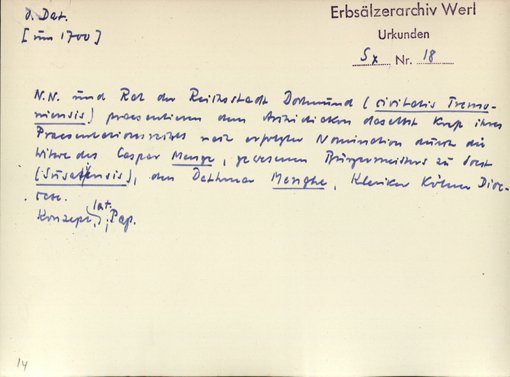 o. Dat.
[um 1700]
Erbsälzerarchiv Werl
Urkunden
Sx Nr. 18
N.N. und Rat der Reichsstadt Dortmund (civitatis Tremo-
niensis) praesentieren dem Archidiakon daselbst kraft ihres
Praesentationsrechts nach erfolgter Nomination durch die
Witwe des Caspar Menge, gewesenen Bürgermeisters zu Soest
(Susatensis), den Dethmar Menghe, Kleriker Kölner Diöze-
se.
Konzept, lat., Pap.
14